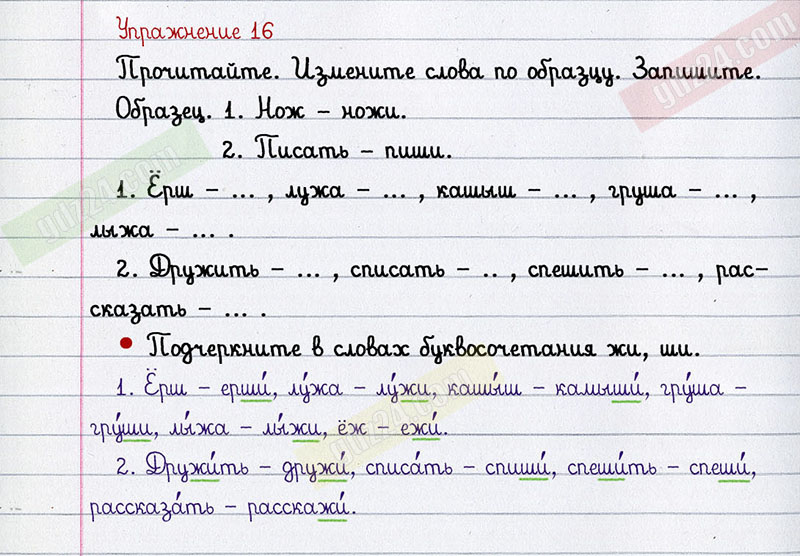 Упражнение 16
Прочитайте. Измените слова по образцу. Запишите.
Образец. 1. Нож – ножи.
2. Писать – пиши.
1. Ёрш – ... , лужа – ... , кашыш – ... , груша – ... ,
лыжа – ... .
2. Дружить – ... , списать – .. , спешить – ... , рас–
сказать – ... .
• Подчеркните в словах буквосочетания жи, ши.
1. Ёрш – ерши́, лу́жа – лу́жи, кашы́ш – камыши́, гру́ша –
гру́ши, лы́жа – лы́жи, ёж – ежи́.
2. Дружи́ть – дружи́, списа́ть – спиши́, спеши́ть – спеши́,
рассказа́ть – расскажи́.
gdz24.com
gdz24.com
gdz24.com